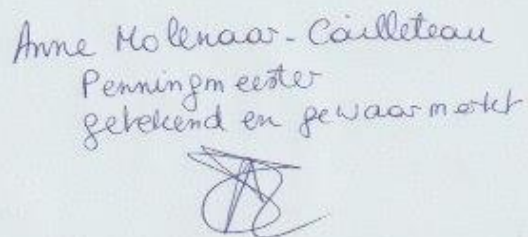 Anne Molenaar-Cailleteau
Penningmeester
getekend en gewaarmerkt